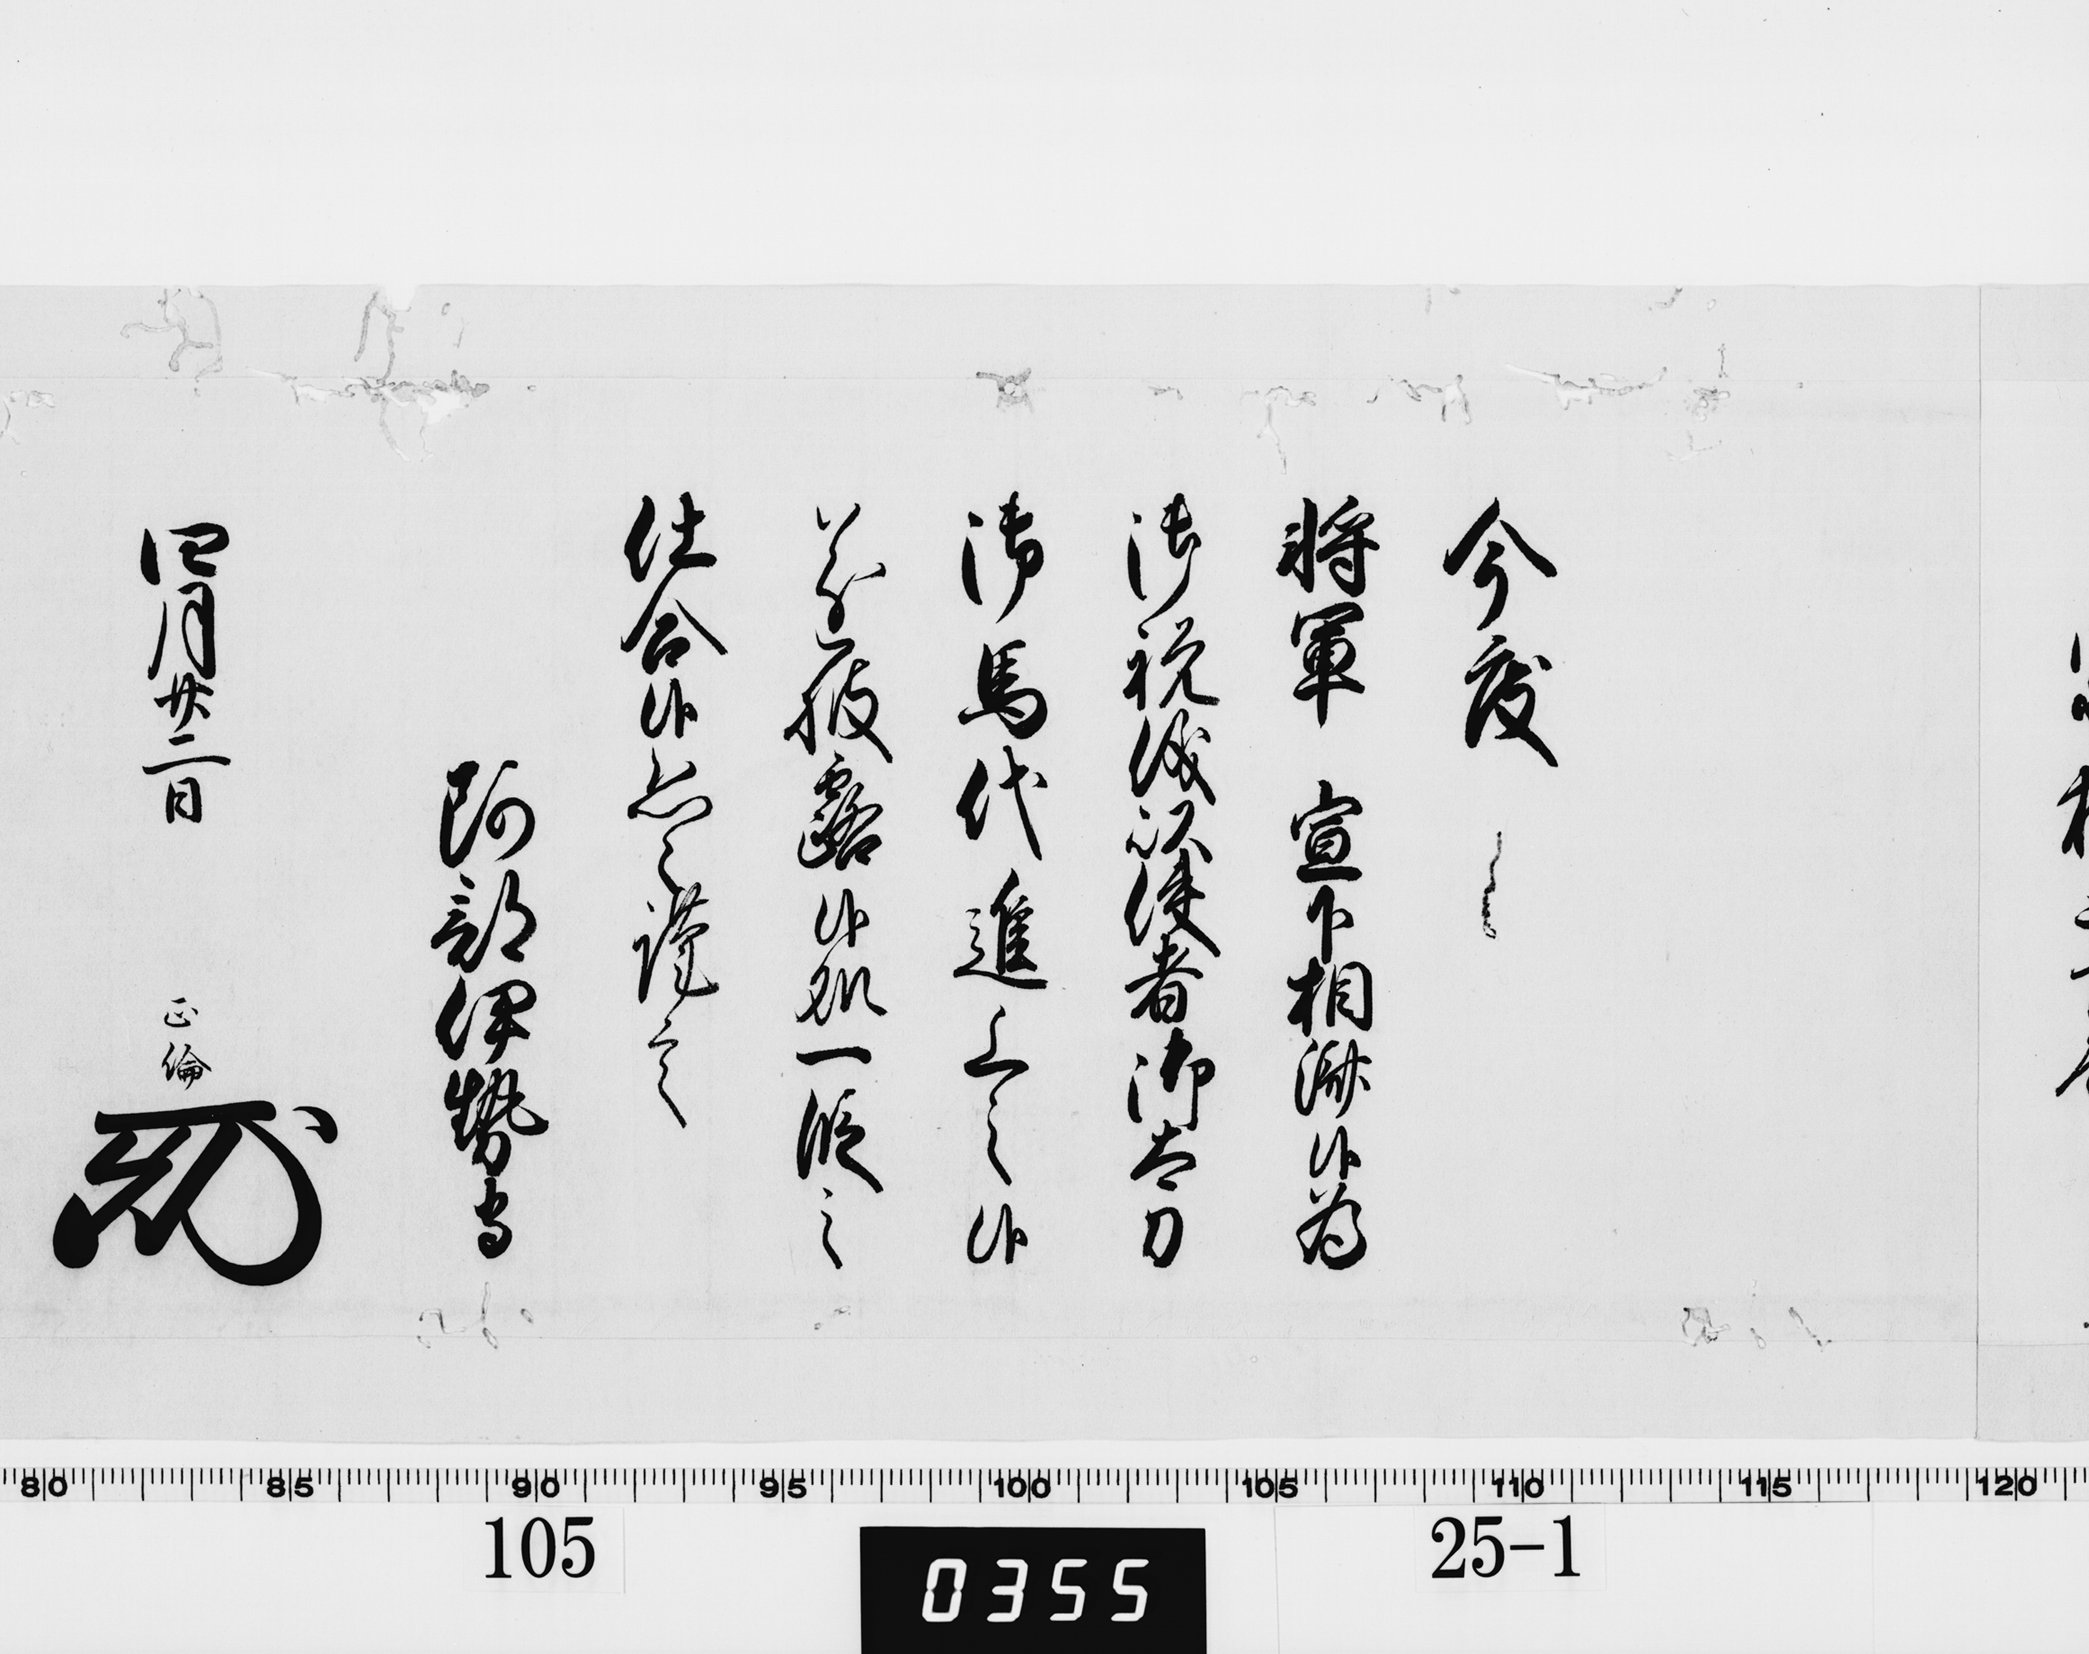 今度
将軍 宣下相済候為
御祝儀以使者御太刀
御馬代進上之候
遂披露候処一段之
仕合候恐々謹言
阿部伊勢守
四月廿二日
正倫
80 85 90 95 100 105 110 115 120
105
0355
25-1